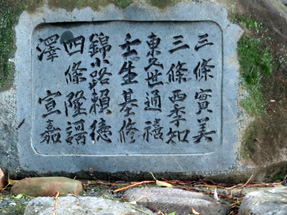 三條實美
三條西季知
東久世通禧
壬生基修
錦小路頼徳
四條隆謌
澤宣嘉